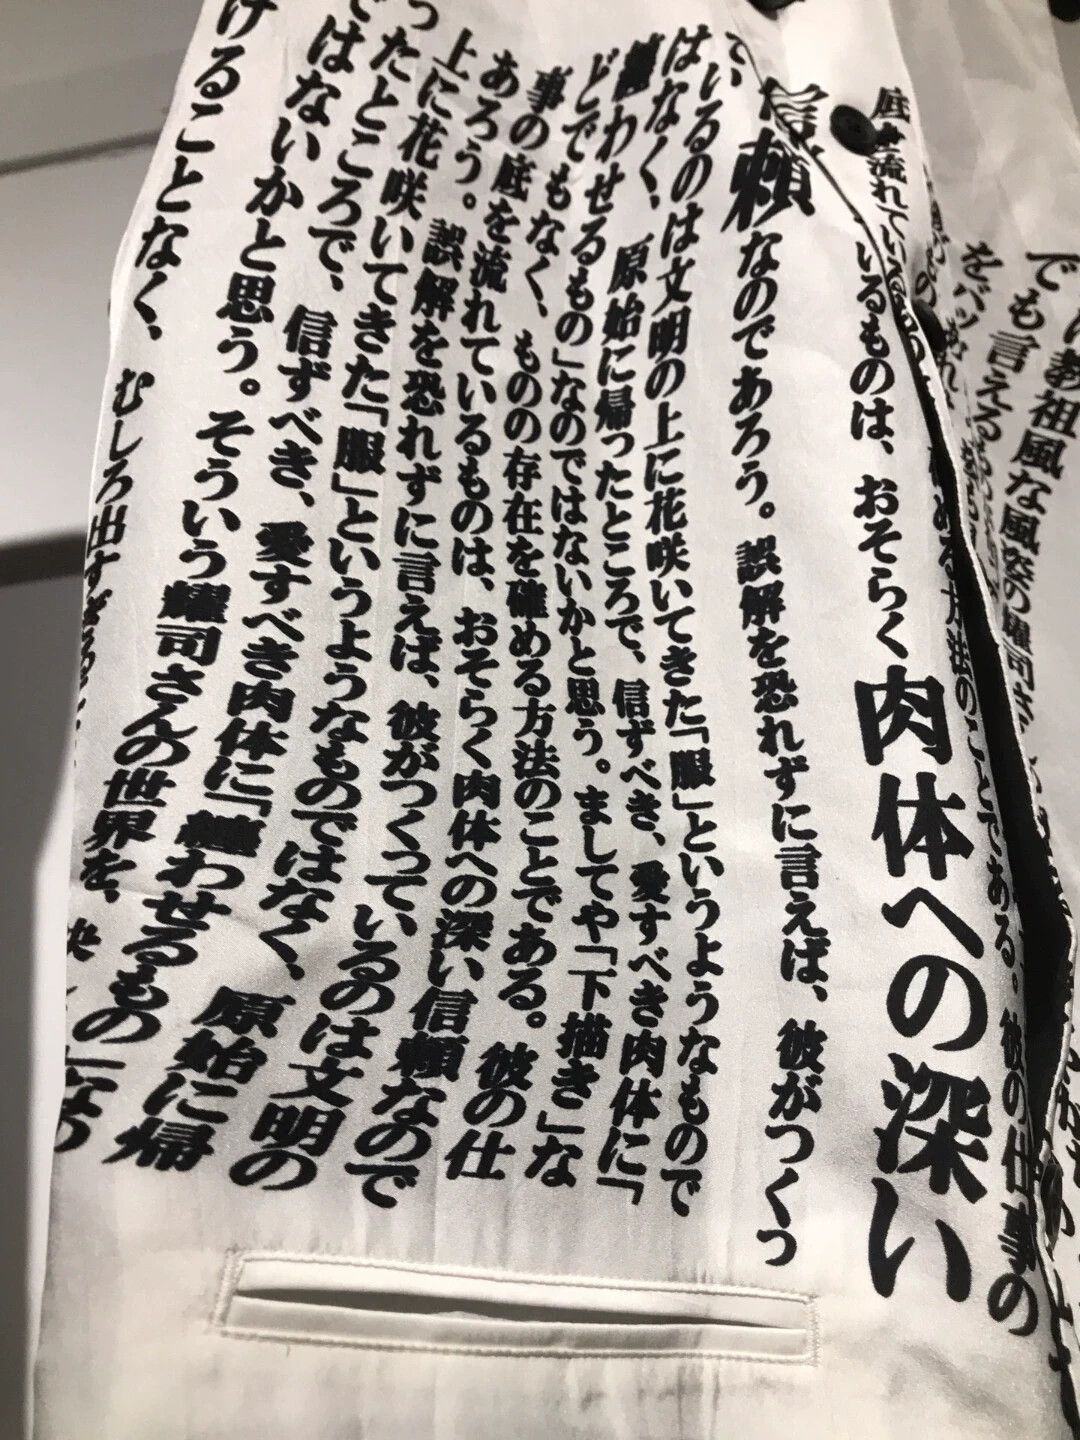 でも言える
教祖風な風姿の耀司さ
をバッ
ある方法のことである。彼の仕事の
底を流れている
いるものは、おそらく肉体への深い
信頼なのであろう。誤解を恐れずに言えば、彼がつくっ
ているのは文明の上に花咲いてきた「服」というようなもので
はなく、原始に帰ったところで、信ずべき、愛すべき肉体に「
纏わせるもの」なのではないかと思う。ましてや「下描き」な
どでもなく、ものの存在を確める方法のことである。彼の仕
事の底を流れているものは、おそらく肉体への深い信頼なので
あろう。誤解を恐れずに言えば、彼がつくって、いるのは文明の
上に花咲いてきた「服」というようなものではなく、原始に帰
ったところで、信ずべき、愛すべき肉体に「纏わせるもの」なの
ではないかと思う。そういう耀司さんの世界を、
けることなく、むしろ出すぎる